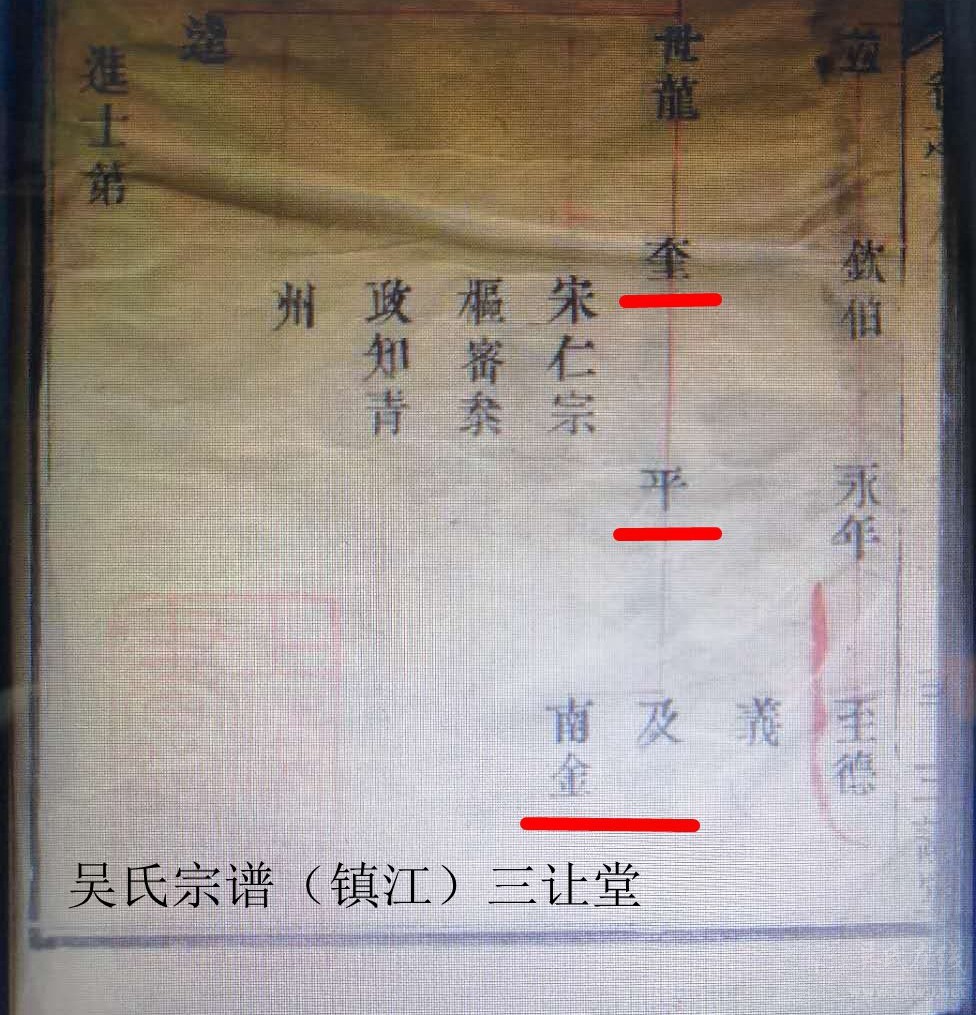 世龍
逵
進士第
欽伯
奎
宋仁宗
樞宻叅
政知青
州
永年
平
至德
義
及
南金
吴氏宗谱（镇江）三让堂